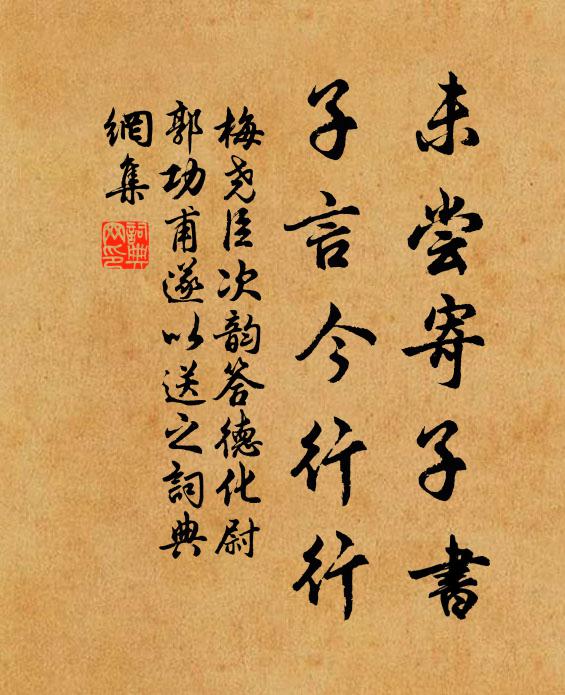 未尝寄子書
子言今行行
梅尧臣次韵答德化尉
郭功甫遂以送之詞典
網集
詞典
网印